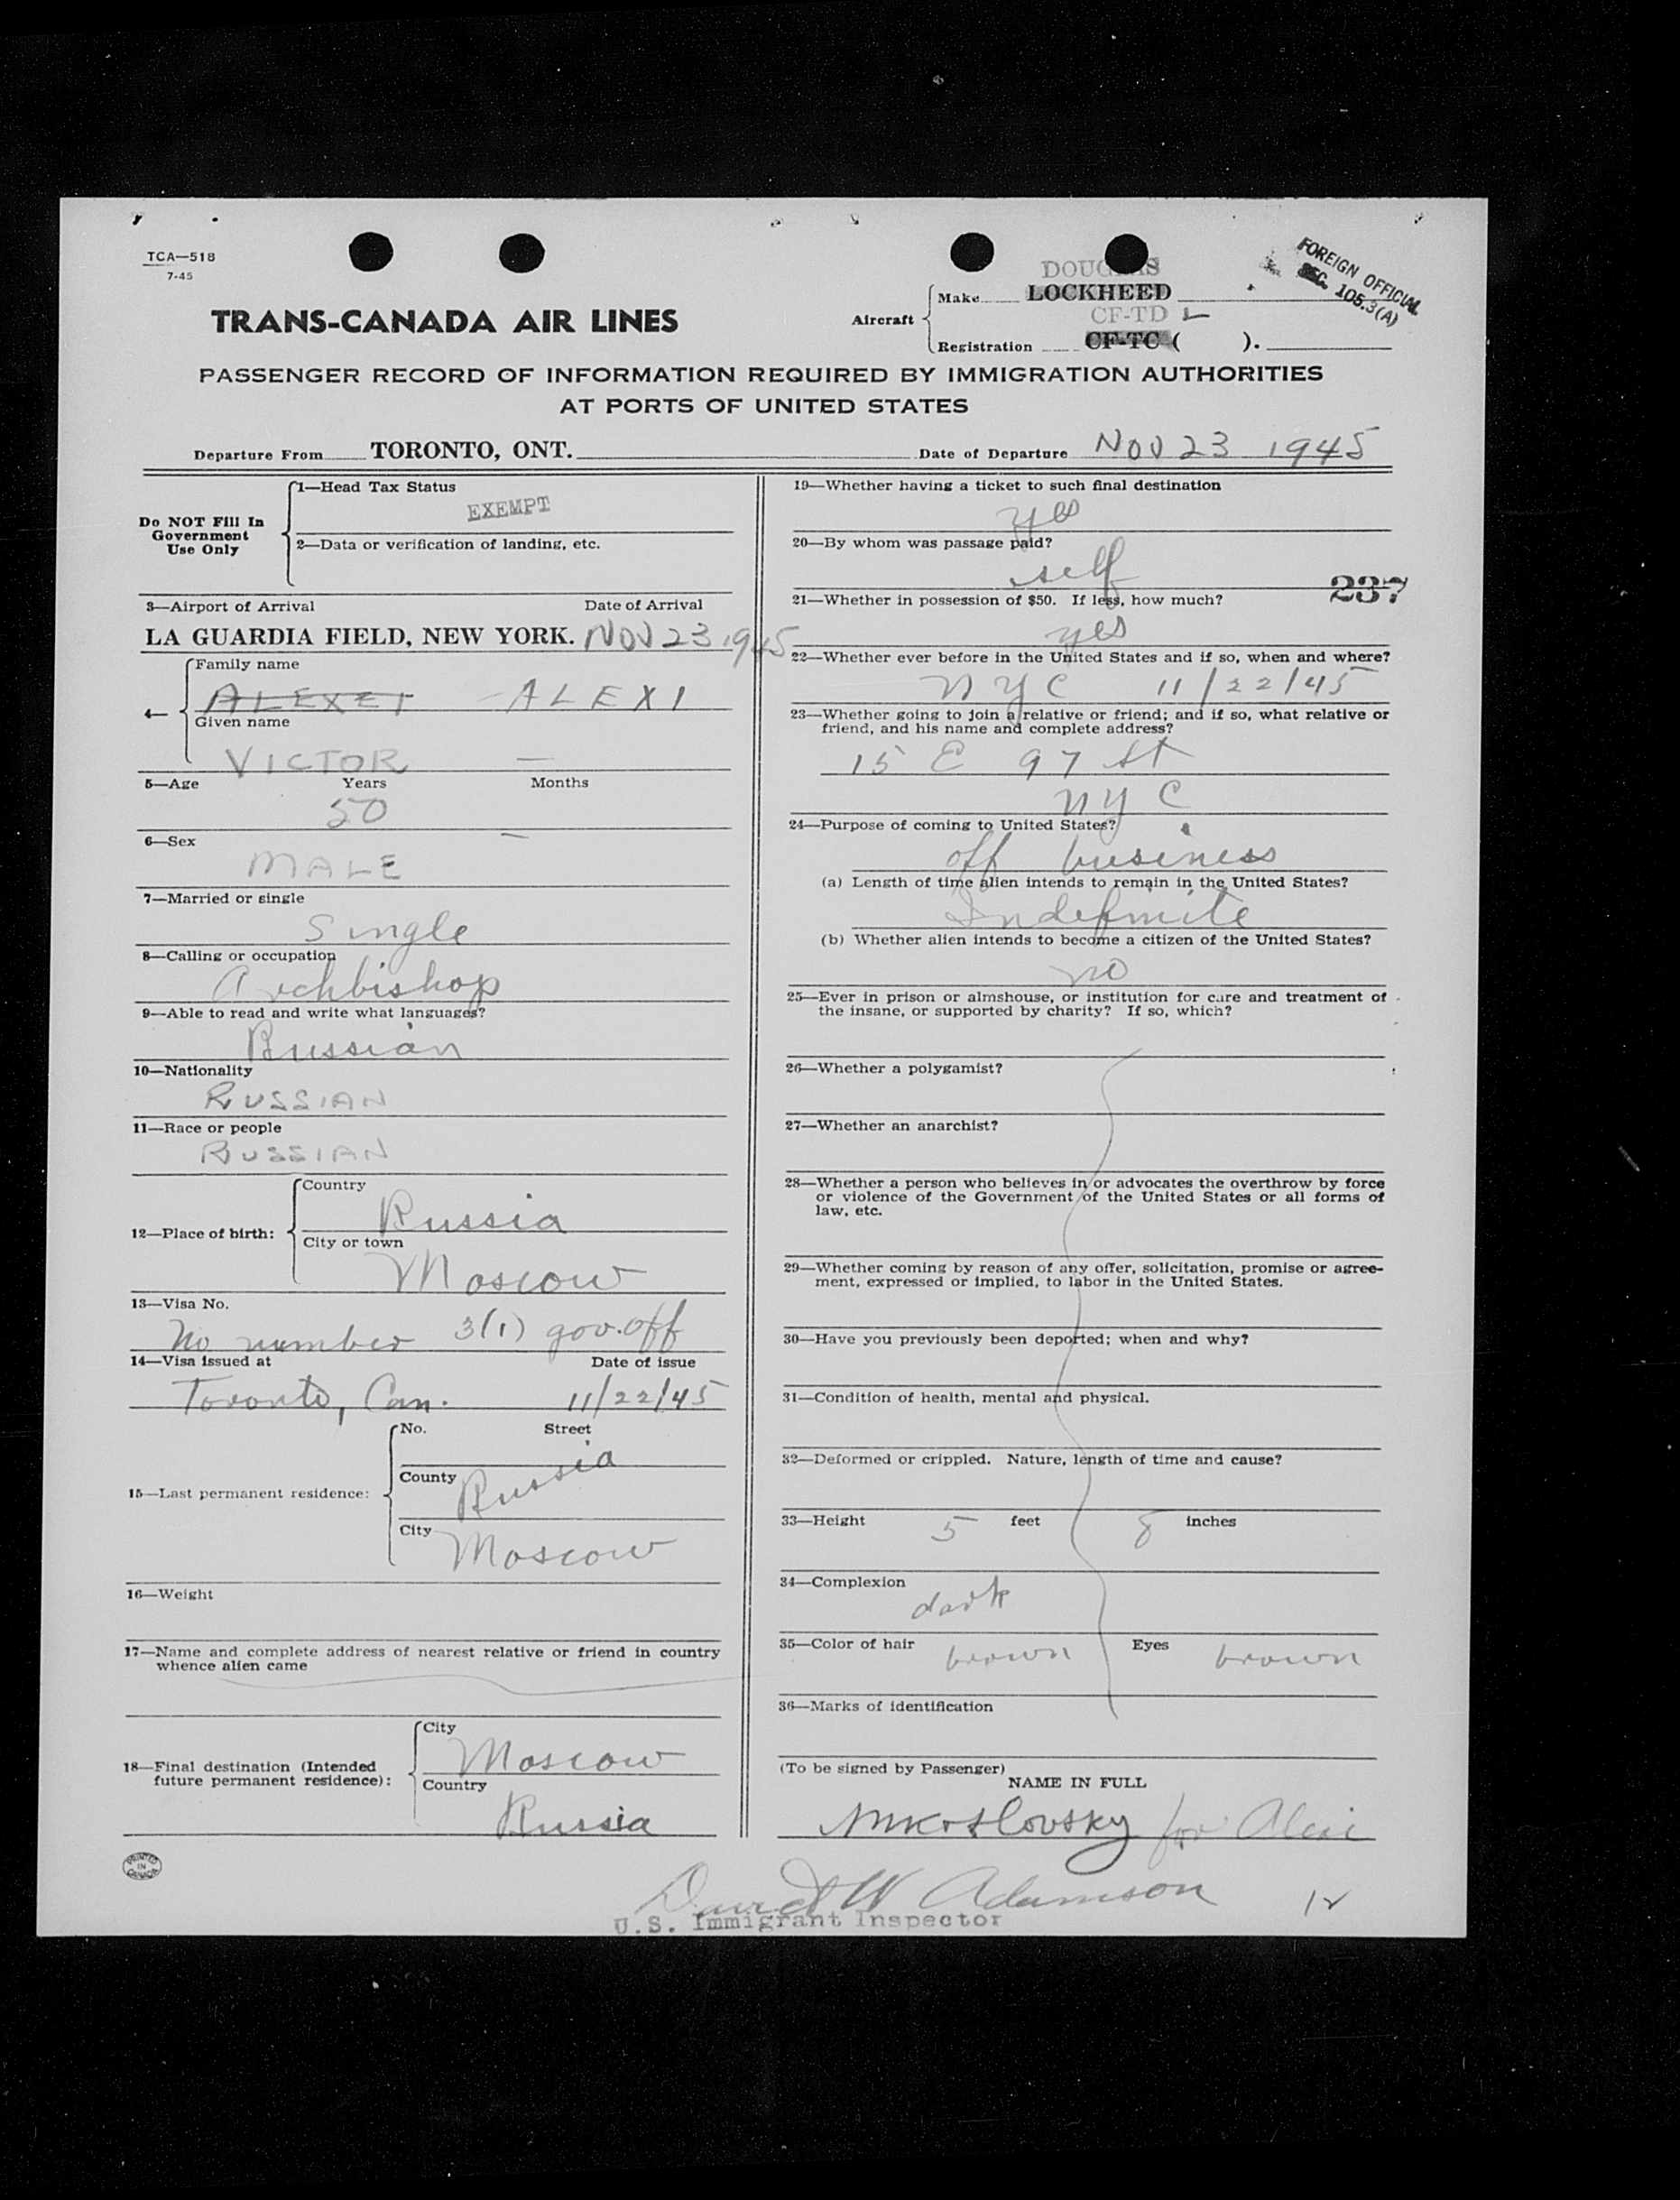 TCA—518
7-45
FOREIGN OFFICIAL
SEC. 105.3(A)
DOUGLAS
Aircraft
Make LOCKHEED
CF-TD L
Registration CF-TC ( ).
TRANS-CANADA AIR LINES
PASSENGER RECORD OF INFORMATION REQUIRED BY IMMIGRATION AUTHORITIES
AT PORTS OF UNITED STATES
Departure From TORONTO, ONT. Date of Departure NOV 23 1945
Do NOT Fill In
Government
Use Only
1—Head Tax Status
EXEMPT
2—Data or verification of landing, etc.
3—Airport of Arrival Date of Arrival
LA GUARDIA FIELD, NEW YORK. NOV 23 1945
4—
Family name
ALEXEI - ALEXI
Given name
VICTOR —
5—Age Years Months
50 —
6—Sex
MALE
7—Married or single
Single
8—Calling or occupation
Archbishop
9—Able to read and write what languages?
Russian
10—Nationality
RUSSIAN
11—Race or people
RUSSIAN
12—Place of birth:
Country
Russia
City or town
Moscow
13—Visa No.
No number 3(1) gov. off
14—Visa issued at Date of issue
Toronto, Can. 11/22/45
15—Last permanent residence:
No. Street
County
Russia
City
Moscow
16—Weight
17—Name and complete address of nearest relative or friend in country
whence alien came
18—Final destination (Intended
future permanent residence):
City
Moscow
Country
Russia
PRINTED
IN
CANADA
19—Whether having a ticket to such final destination
yes
20—By whom was passage paid?
self
237
21—Whether in possession of $50. If less, how much?
yes
22—Whether ever before in the United States and if so, when and where?
NYC 11/22/45
23—Whether going to join a relative or friend; and if so, what relative or
friend, and his name and complete address?
15 E 97 St
NYC
24—Purpose of coming to United States?
off business
(a) Length of time alien intends to remain in the United States?
Indefinite
(b) Whether alien intends to become a citizen of the United States?
no
25—Ever in prison or almshouse, or institution for care and treatment of
the insane, or supported by charity? If so, which?
26—Whether a polygamist?
27—Whether an anarchist?
28—Whether a person who believes in or advocates the overthrow by force
or violence of the Government of the United States or all forms of
law, etc.
29—Whether coming by reason of any offer, solicitation, promise or agree-
ment, expressed or implied, to labor in the United States.
30—Have you previously been deported; when and why?
31—Condition of health, mental and physical.
32—Deformed or crippled. Nature, length of time and cause?
33—Height 5 feet 8 inches
34—Complexion
dark
35—Color of hair brown Eyes brown
36—Marks of identification
(To be signed by Passenger)
NAME IN FULL
for Alexi
David W Adamson
U.S. Immigrant Inspector